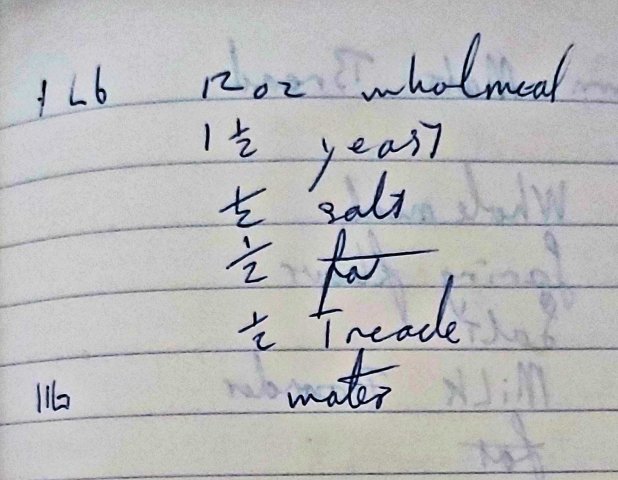 1 Lb 12 oz wholmeal
1 1/2 yeast
1/2 salt
1/2 fat
1/2 Treacle
1 lb water